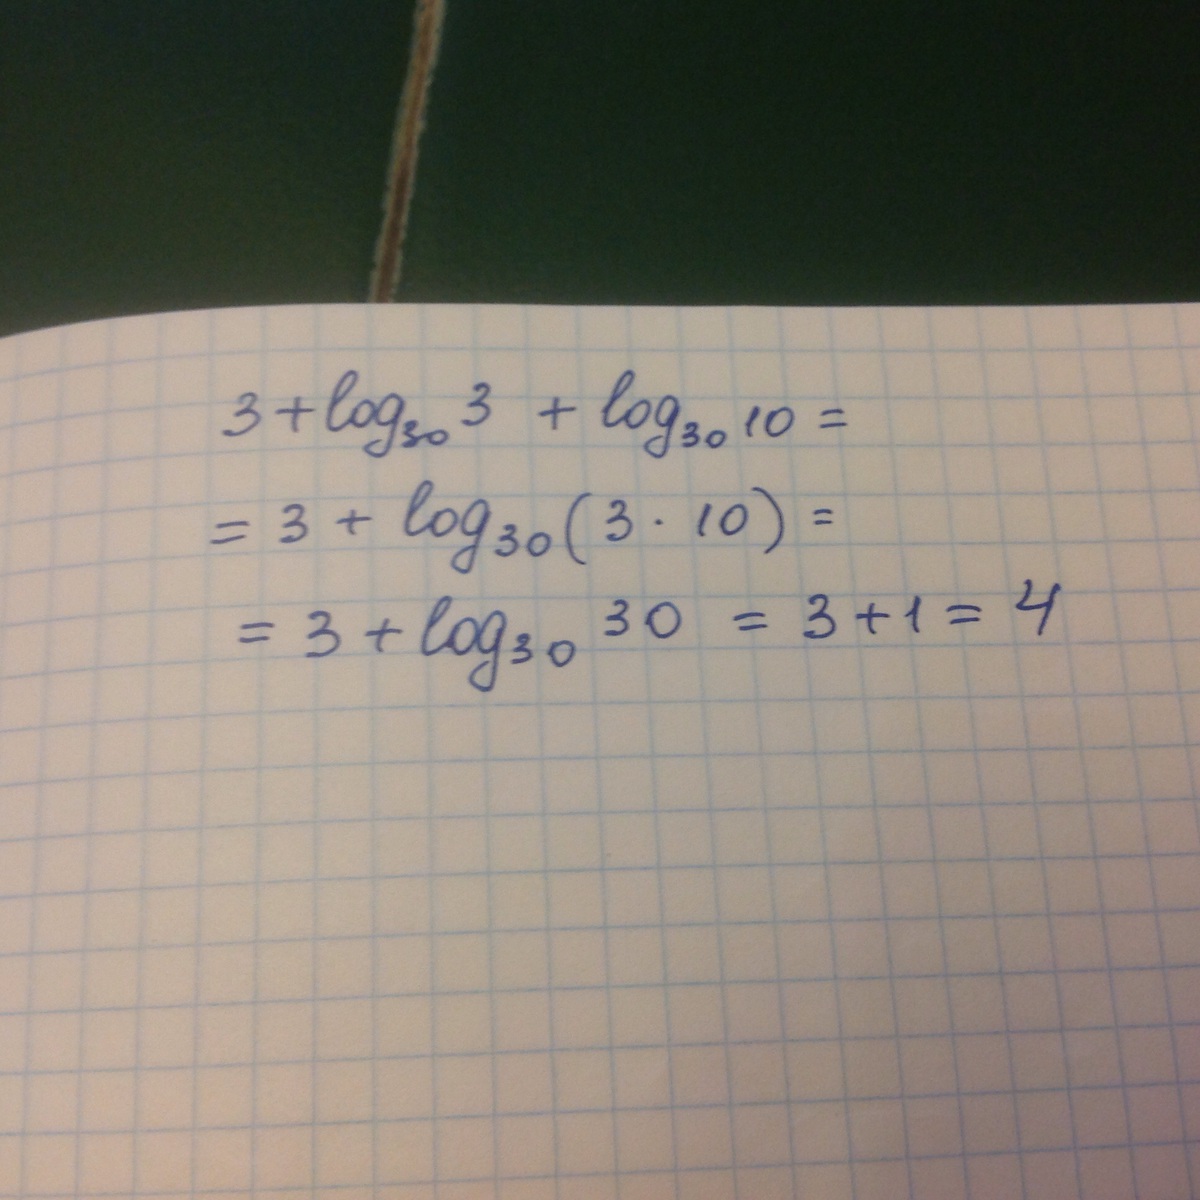 3 + log₃₀ 3 + log₃₀ 10 =
= 3 + log₃₀ (3 · 10) =
= 3 + log₃₀ 30 = 3 + 1 = 4